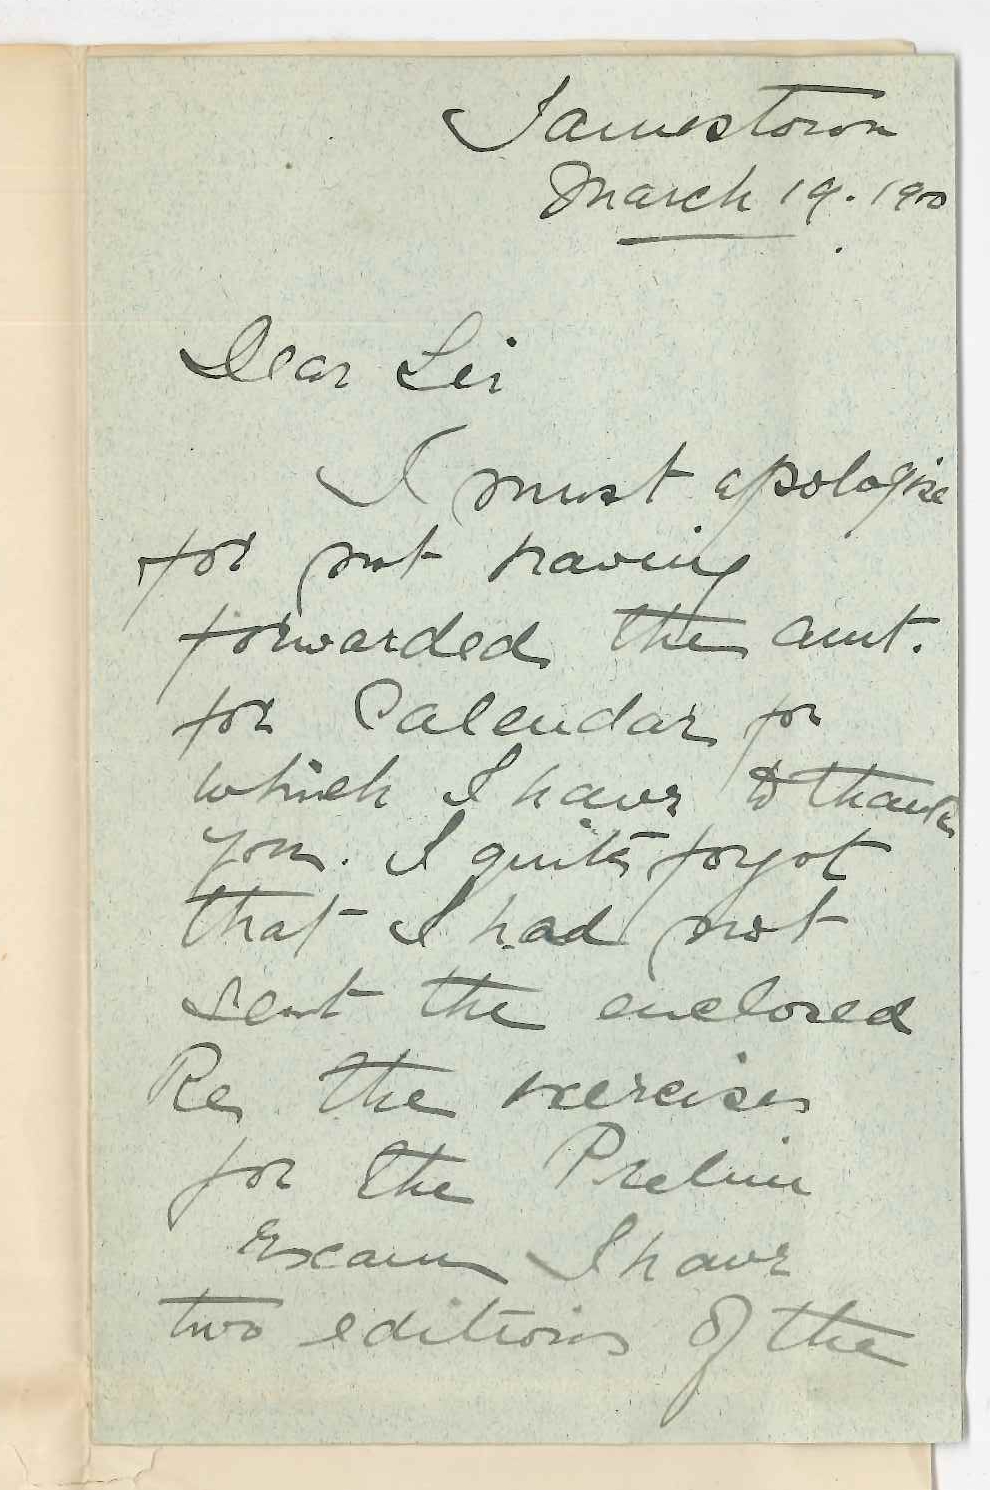 Jamestown
March 19. 1900
Dear Sir
I must apologise
for not having
forwarded the amt.
for Calendar for
which I have to thank
you. I quite forgot
that I had not
sent the enclosed
Re the exercises
for the Prelim
Exam I have
two editions of the